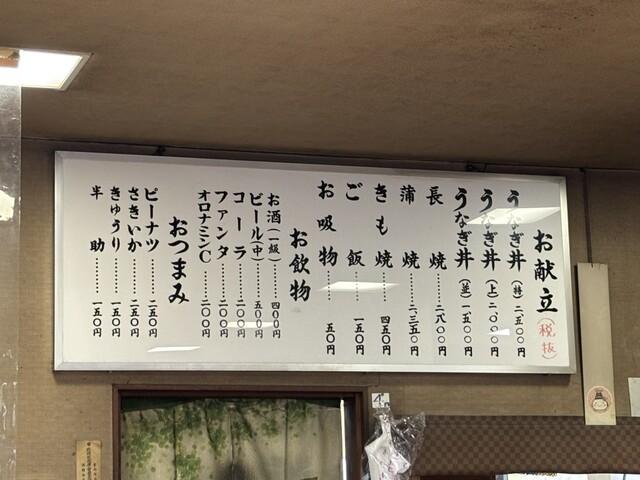 お献立(税抜)
うなぎ丼(特)二、五〇〇円
うなぎ丼(上)二、〇〇〇円
うなぎ丼(並)一、五〇〇円
長焼………二、八〇〇円
蒲焼………二、三五〇円
きも焼………四五〇円
ご飯………一五〇円
お吸物………五〇円
お飲物
お酒(一級)………四〇〇円
ビール(中)………五〇〇円
コーラ………二〇〇円
ファンタ………二〇〇円
オロナミンC………二〇〇円
おつまみ
ピーナツ………二五〇円
さきいか………二五〇円
きゅうり………一五〇円
半助………一五〇円